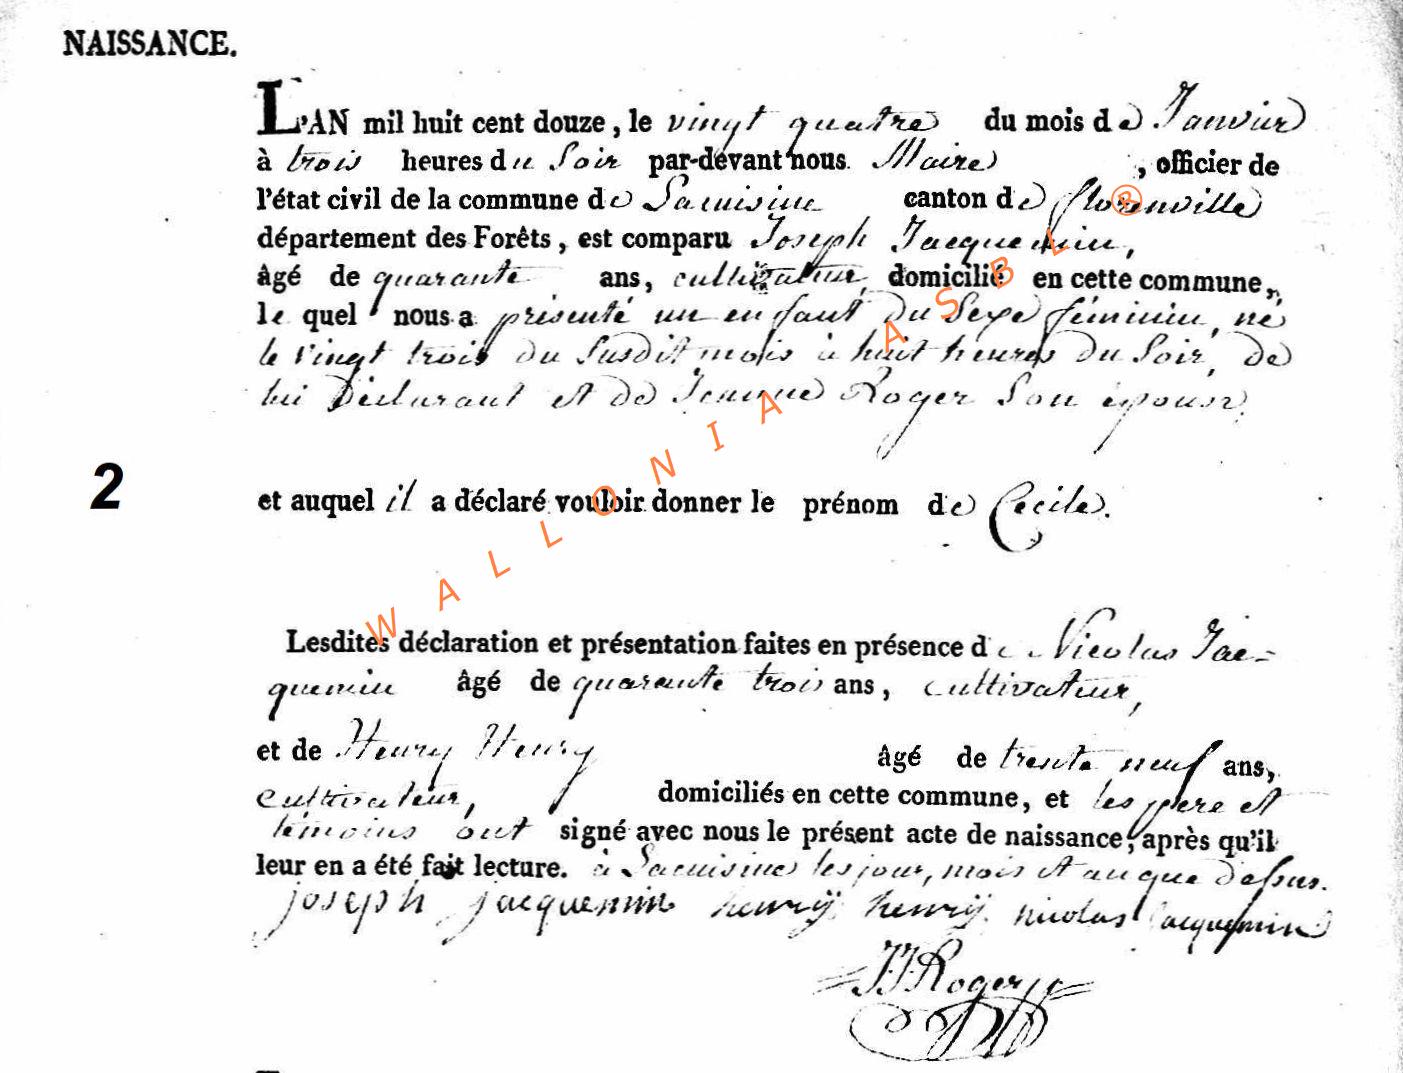 NAISSANCE.
L'AN mil huit cent douze, le vingt quatre du mois de Janvier
à trois heures du Soir par-devant nous Maire, officier de
l'état civil de la commune de Lacuisine canton de florenville
département des Forêts, est comparu Joseph Jacquemin,
âgé de quarante ans, cultivateur domicilié en cette commune,
le quel nous a présenté un enfant du Sexe féminin, né
le vingt trois du susdit mois à huit heures du Soir, de
lui Déclarant et de Jeanne Roger Son épouse
2
et auquel il a déclaré vouloir donner le prénom de Cécile.
Lesdites déclaration et présentation faites en présence de Nicolas Jac-
quemin âgé de quarante trois ans, cultivateur,
et de Henry Henry âgé de trente neuf ans,
cultivateur, domiciliés en cette commune, et les père et
témoins ont signé avec nous le présent acte de naissance, après qu'il
leur en a été fait lecture. à Lacuisine les jour, mois et an que dessus.
joseph jacquemin henrÿ henrÿ nicolas Jacquemin
JJRoger
WALLONIA ASBL ®